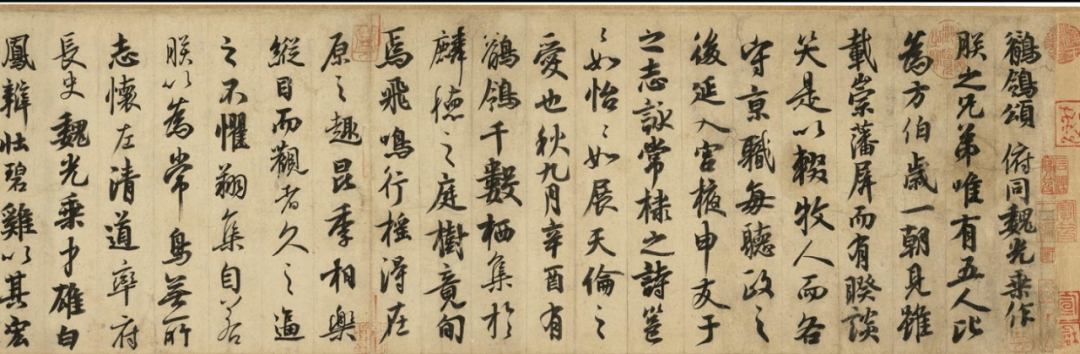 鶺鴒頌 俯同魏光乗作
朕之兄弟唯有五人比
為方伯歳一朝見雖
載崇藩屏而有睽談
笑是以輟牧人而各
守京職每聽政之
後延入宮掖申友于
之志詠常棣之詩邕
邕如怡怡如展天倫之
愛也秋九月辛酉有
鶺鴒千數栖集於
麟徳之庭樹竟旬
焉飛鳴行搖得在
原之趣昆季相樂
縱目而觀者久之逼
之不懼翔集自若
朕以為常鳥無所
志懷左清道率府
長史魏光乗才雄白
鳳辯壯碧雞以其宏